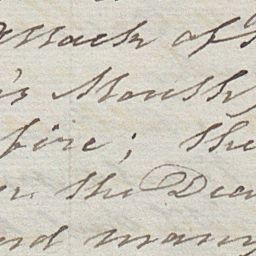 attack of
's Mouth,
fire; the
the Dea
and many